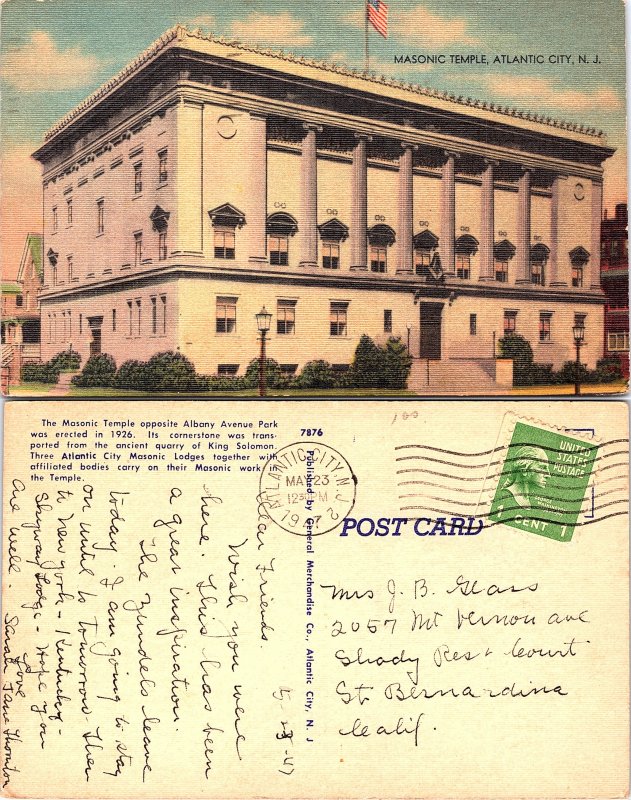 MASONIC TEMPLE, ATLANTIC CITY, N. J.
The Masonic Temple opposite Albany Avenue Park
was erected in 1926. Its cornerstone was trans-
ported from the ancient quarry of King Solomon.
Three Atlantic City Masonic Lodges together with
affiliated bodies carry on their Masonic work in
the Temple.
7876
Published by General Merchandise Co., Atlantic City, N. J
ATLANTIC CITY, N.J.
2
MAY 23
12 30 PM
1947
POST CARD
UNITED
STATES
POSTAGE
1 CENT 1
100
5-23-47
Dear Friends.
Wish you were
here. This has been
a great inspiration.
The Zundels leave
today. I am going to stay
on until to tomorrow - then
to New York - Kentucky -
Skyway Lodge - Hope you
are well.
Love
Sarah Jane Thornton
Mrs J. B. Glass
2057 Mt Vernon ave
Shady Rest Court
St Bernardina
Calif.